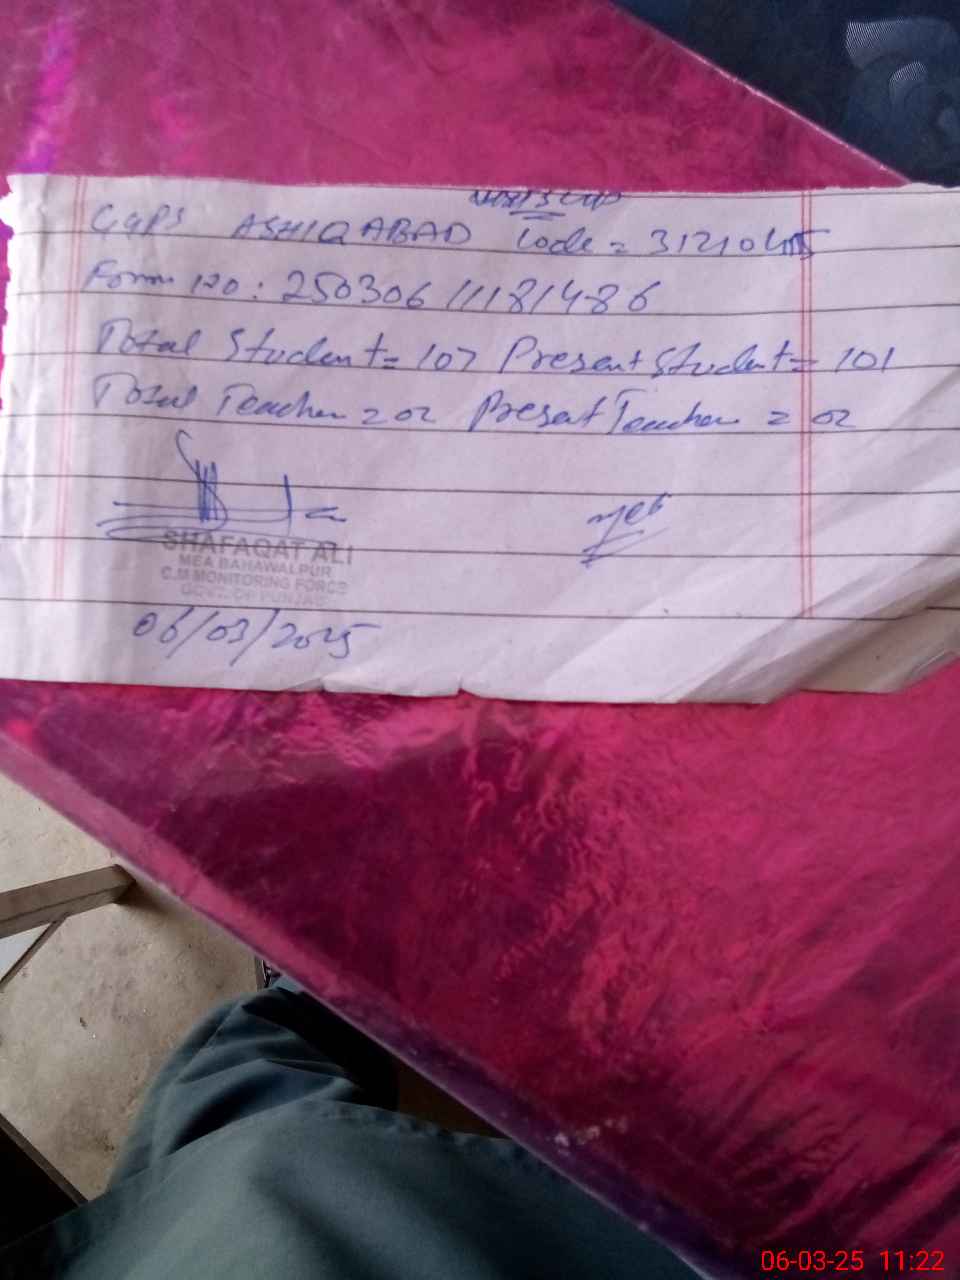 GGPS ASHIQABAD Code = 312104
Form no: 25030611181486
Total Student = 107 Present Student = 101
Total Teacher = 02 Present Teacher = 02
SHAFAQAT ALI
MEA BAHAWALPUR
C.M MONITORING FORCE
GOVT. OF PUNJAB
06/03/2025
06-03-25 11:22